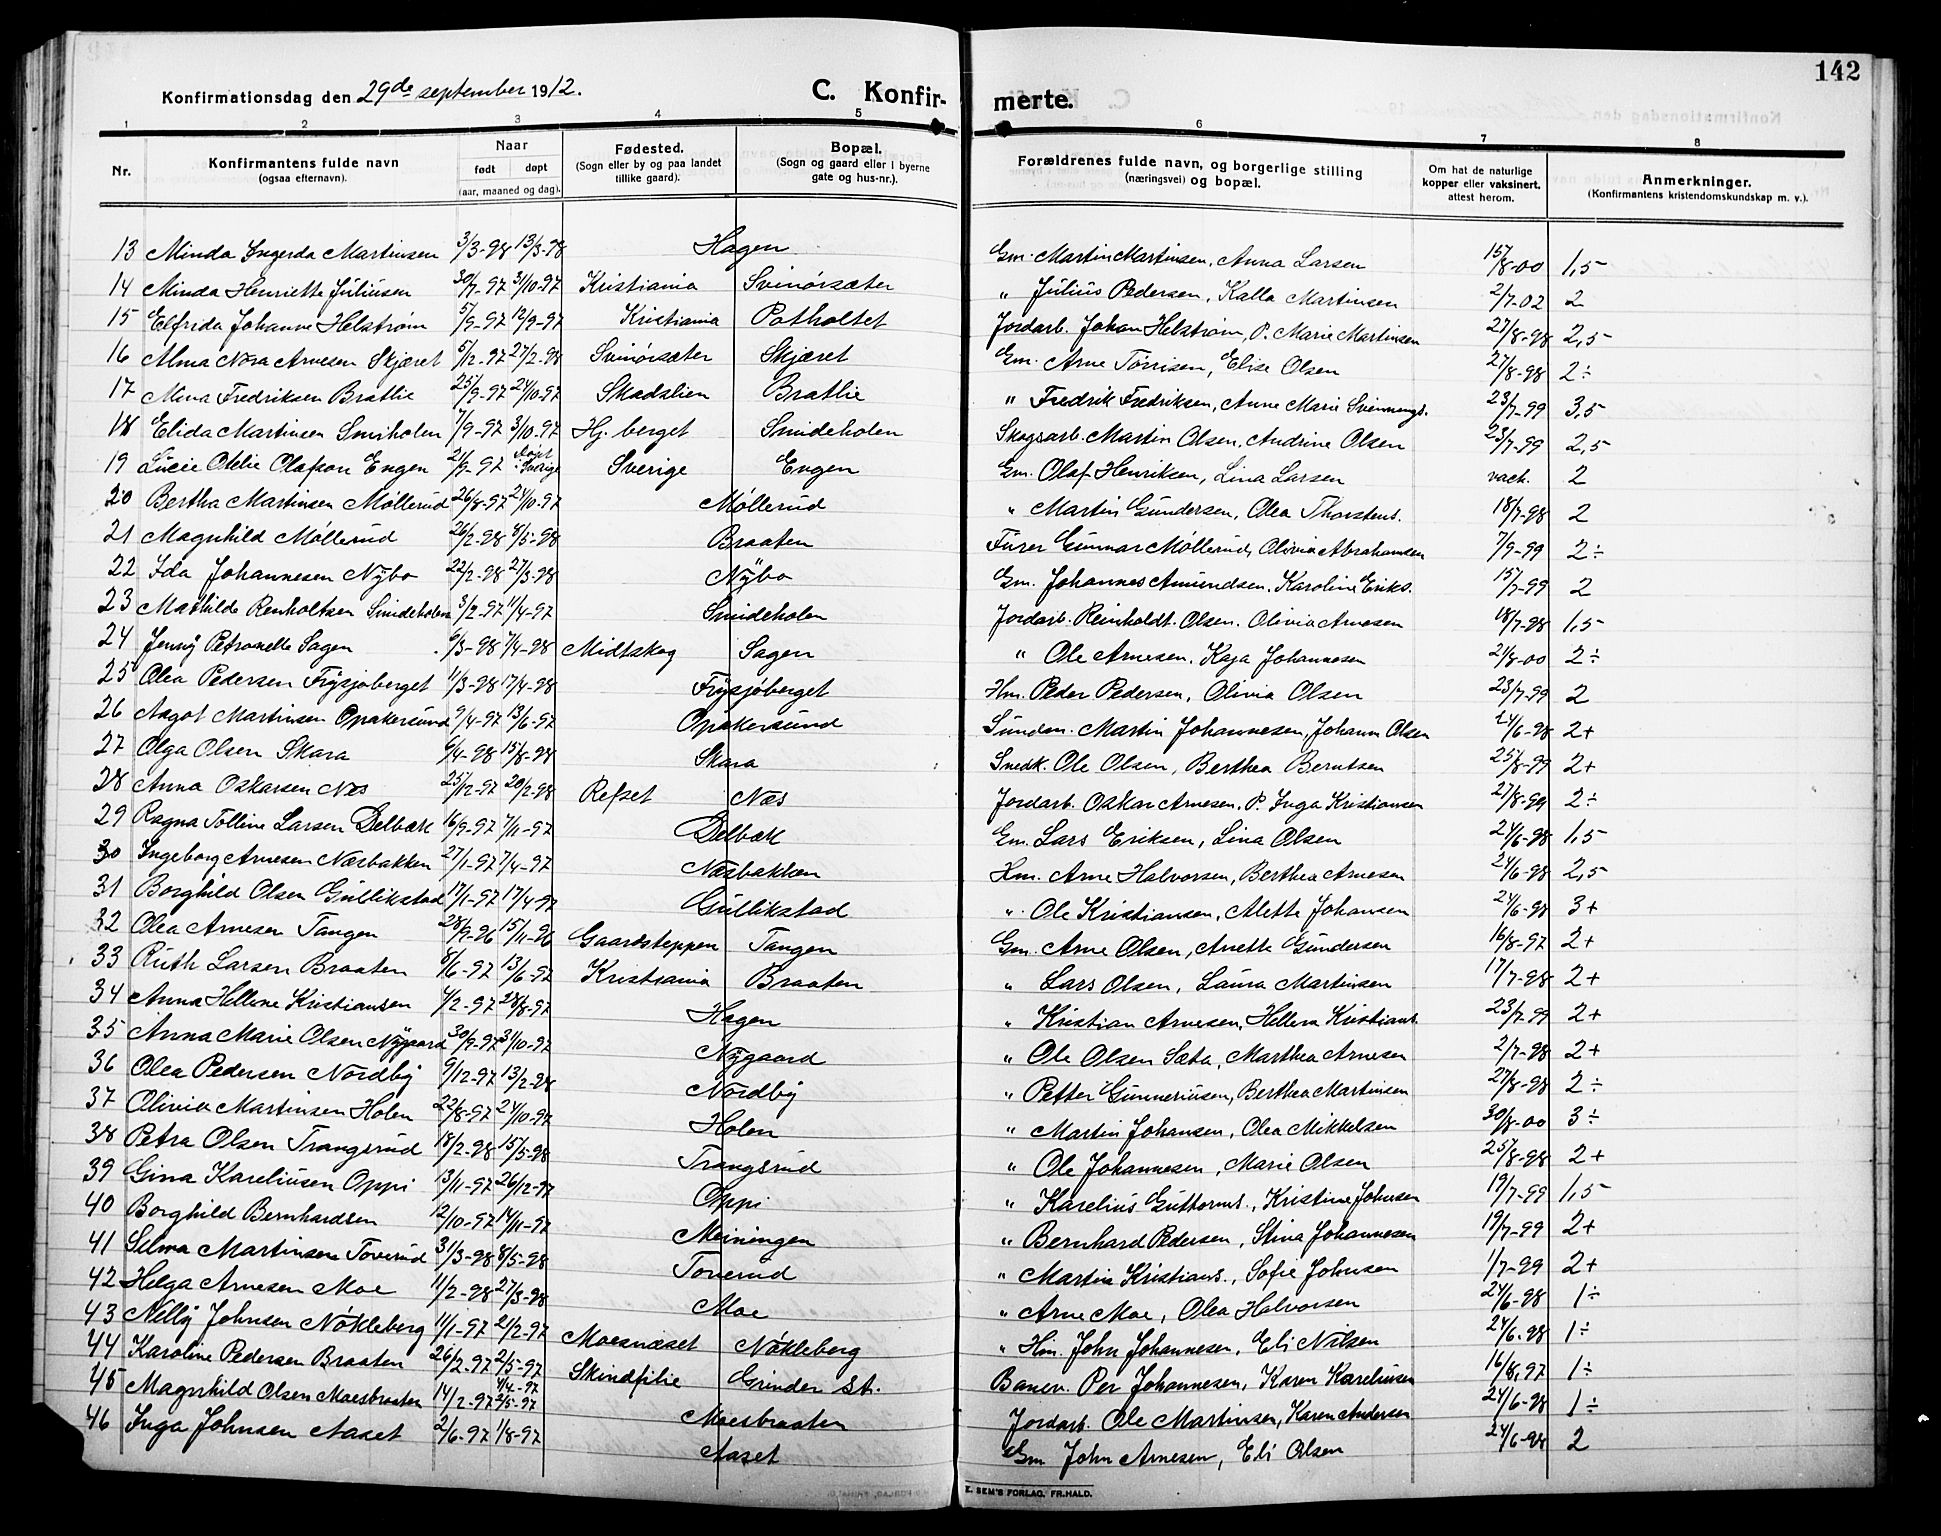 142
Konfirmationsdag den 29de september 1912. C. Konfir- merte.
1 2 3 4 5 6 7 8
Nr. Konfirmantens fulde navn (ogsaa efternavn). Naar født døpt (aar, maaned og dag). Fødested. (Sogn eller by og paa landet tillike gaard). Bopæl. (Sogn og gaard eller i byerne gate og hus-nr.). Forældrenes fulde navn, og borgerlige stilling (næringsvei) og bopæl. Om hat de naturlige kopper eller vaksinert, attest herom. Anmerkninger. (Konfirmantens kristendomskundskap m. v.).
13 Minda Ingerda Martinsen 3/3-98 13/3-98 Hagen Gm. Martin Martinsen, Anna Larsen 15/8-00 1,5
14 Minda Henriette Juliusen 30/7-97 31/10-97 Kristiania Svinörsæter " Julius Pedersen, Kalla Martinsen 2/7-02 2
15 Elfrida Johanne Helstrøm 5/9-97 12/9-97 Kristiania Potholtet Jordarb. Johan Helstrøm, P. Marie Martinsen 27/8-98 2,5
16 Alma Nora Arnesen Skjæret 5/12-97 27/2-98 Svinörsæter Skjæret Gm. Arne Tørrisen, Elise Olsen 27/8-98 2÷
17 Mina Fredriksen Bratlie 25/9-97 24/10-97 Skadslien Bratlie " Fredrik Fredriksen, Anne Marie 23/7-99 3,5
18 Elida Martinsen Smiholen 7/9-97 3/10-97 Hj. berget Smideholen Skogsarb. Martin Olsen, Andrine Olsen 23/7-99 2,5
19 Lucie Otelie Olafson Engen 21/9-97 døpt i Sverige Sverige Engen Gm. Olaf Henriksen, Lina Larsen vach. 2
20 Bertha Martinsen Møllerud 26/8-97 24/10-97 Møllerud " Martin Gundersen, Olea Thorstens. 18/7-98 2
21 Magnhild Møllerud 26/2-98 8/5-98 Braaten Furer Gunnar Møllerud, Olivia Abrahamsen 7/9-99 2÷
22 Ida Johannesen Nybo 22/2-98 27/3-98 Nybo Gm. Johannes Amundsen, Karoline Eriks. 15/7-99 2
23 Mathilde Renholtsen Smideholen 3/2-97 11/4-97 Smideholen Jordarb. Reinholdt Olsen. Olivia Arnesen 18/7-98 1,5
24 Jenny Petronelle Sagen 6/3-98 7/4-98 Midtskog Sagen " Ole Arnesen, Kaja Johannesen 21/8-00 2÷
25 Olea Pedersen Frysjøberget 11/3-98 17/4-98 Frysjøberget Hm. Peder Pedersen, Olivia Olsen 23/7-99 2
26 Aagot Martinsen Opakersund 9/4-97 13/6-97 Opakersund Sundm. Martin Johannesen, Johann Olsen 24/6-98 2+
27 Olga Olsen Skara 6/4-98 15/8-98 Skara Snedk. Ole Olsen, Berthea Berntsen 25/8-99 2+
28 Anna Oskarsen Næs 25/12-97 20/2-98 Refset Næs Jordarb. Oskar Arnesen, P. Inga Kristiansen 27/8-99 2÷
29 Ragna Tolline Larsen Delbæk 16/9-97 7/11-97 Delbæk Gm. Lars Eriksen, Lina Olsen 24/6-98 1,5
30 Ingeborg Arnesen Næsbakken 27/1-97 7/4-97 Næsbakken Hm. Arne Halvorsen, Berthea Arnesen 24/6-98 2,5
31 Borghild Olsen Gullikstad 17/1-97 17/4-97 Gullikstad " Ole Kristiansen, Alette Johansen 24/6-98 3+
32 Olea Arnesen Tangen 28/9-96 15/11-96 Gaardsteppen Tangen Gm. Arne Olsen, Anette Gundersen 16/8-97 2+
33 Ruth Larsen Braaten 8/6-97 13/6-97 Kristiania Braaten " Lars Olsen, Laura Martinsen 17/7-98 2+
34 Anna Hellene Kristiansen 4/2-97 28/8-97 Hagen " Kristian Arnesen, Hellena Kristians. 23/7-99 2+
35 Anna Marie Olsen Nygaard 30/9-97 31/10-97 Nygaard " Ole Olsen Sæta, Marthea Arnesen 2/7-98 2+
36 Olea Pedersen Nordby 9/12-97 13/2-98 Nordby " Petter Gunneriusen, Berthea Martinsen 27/8-98 2÷
37 Olivia Martinsen Holen 22/8-97 24/10-97 Holen " Martin Johansen, Olea Mikkelsen 30/8-00 3÷
38 Petra Olsen Trangsrud 18/2-98 15/5-98 Trangsrud " Ole Johannesen, Marie Olsen 25/8-98 2+
39 Gina Kareliusen Oppi 13/11-97 26/12-97 Oppi " Karelius Guttorms., Kristine Johnsen 19/7-99 1,5
40 Borghild Bernhardsen 12/10-97 14/11-97 Meiningen " Bernhard Pedersen, Stina Johannesen 19/7-99 2+
41 Selma Martinsen Toverud 31/3-98 8/5-98 Toverud " Martin Kristians., Sofie Johnsen 1/7-99 2+
42 Helga Arnesen Moe 11/2-98 27/3-98 Moe " Arne Moe, Olea Halvorsen 24/6-98 1÷
43 Nelly Johnsen Nökleberg 11/1-97 21/2-97 Moesnæset Nökleberg " Hm. John Johannesen, Eli Nilsen 24/6-98 1÷
44 Karoline Pedersen Braaten 26/2-97 2/5-97 Skindfilie Grinder st. Banev. Per Johannesen, Karen Kareliusen 16/8,97 1÷
45 Magnhild Olsen Moesbraaten 14/2-97 4/4-97 2/5-97 Moesbraaten Jordarb. Ole Martinsen, Karen Andersen 24/6-98 1÷
46 Inga Johnsen Aaset 2/6-97 1/8-97 Aaset Gm John Arnesen, Eli Olsen 24/6-98 2
E. SEM'S FORLAG, FR.HALD.